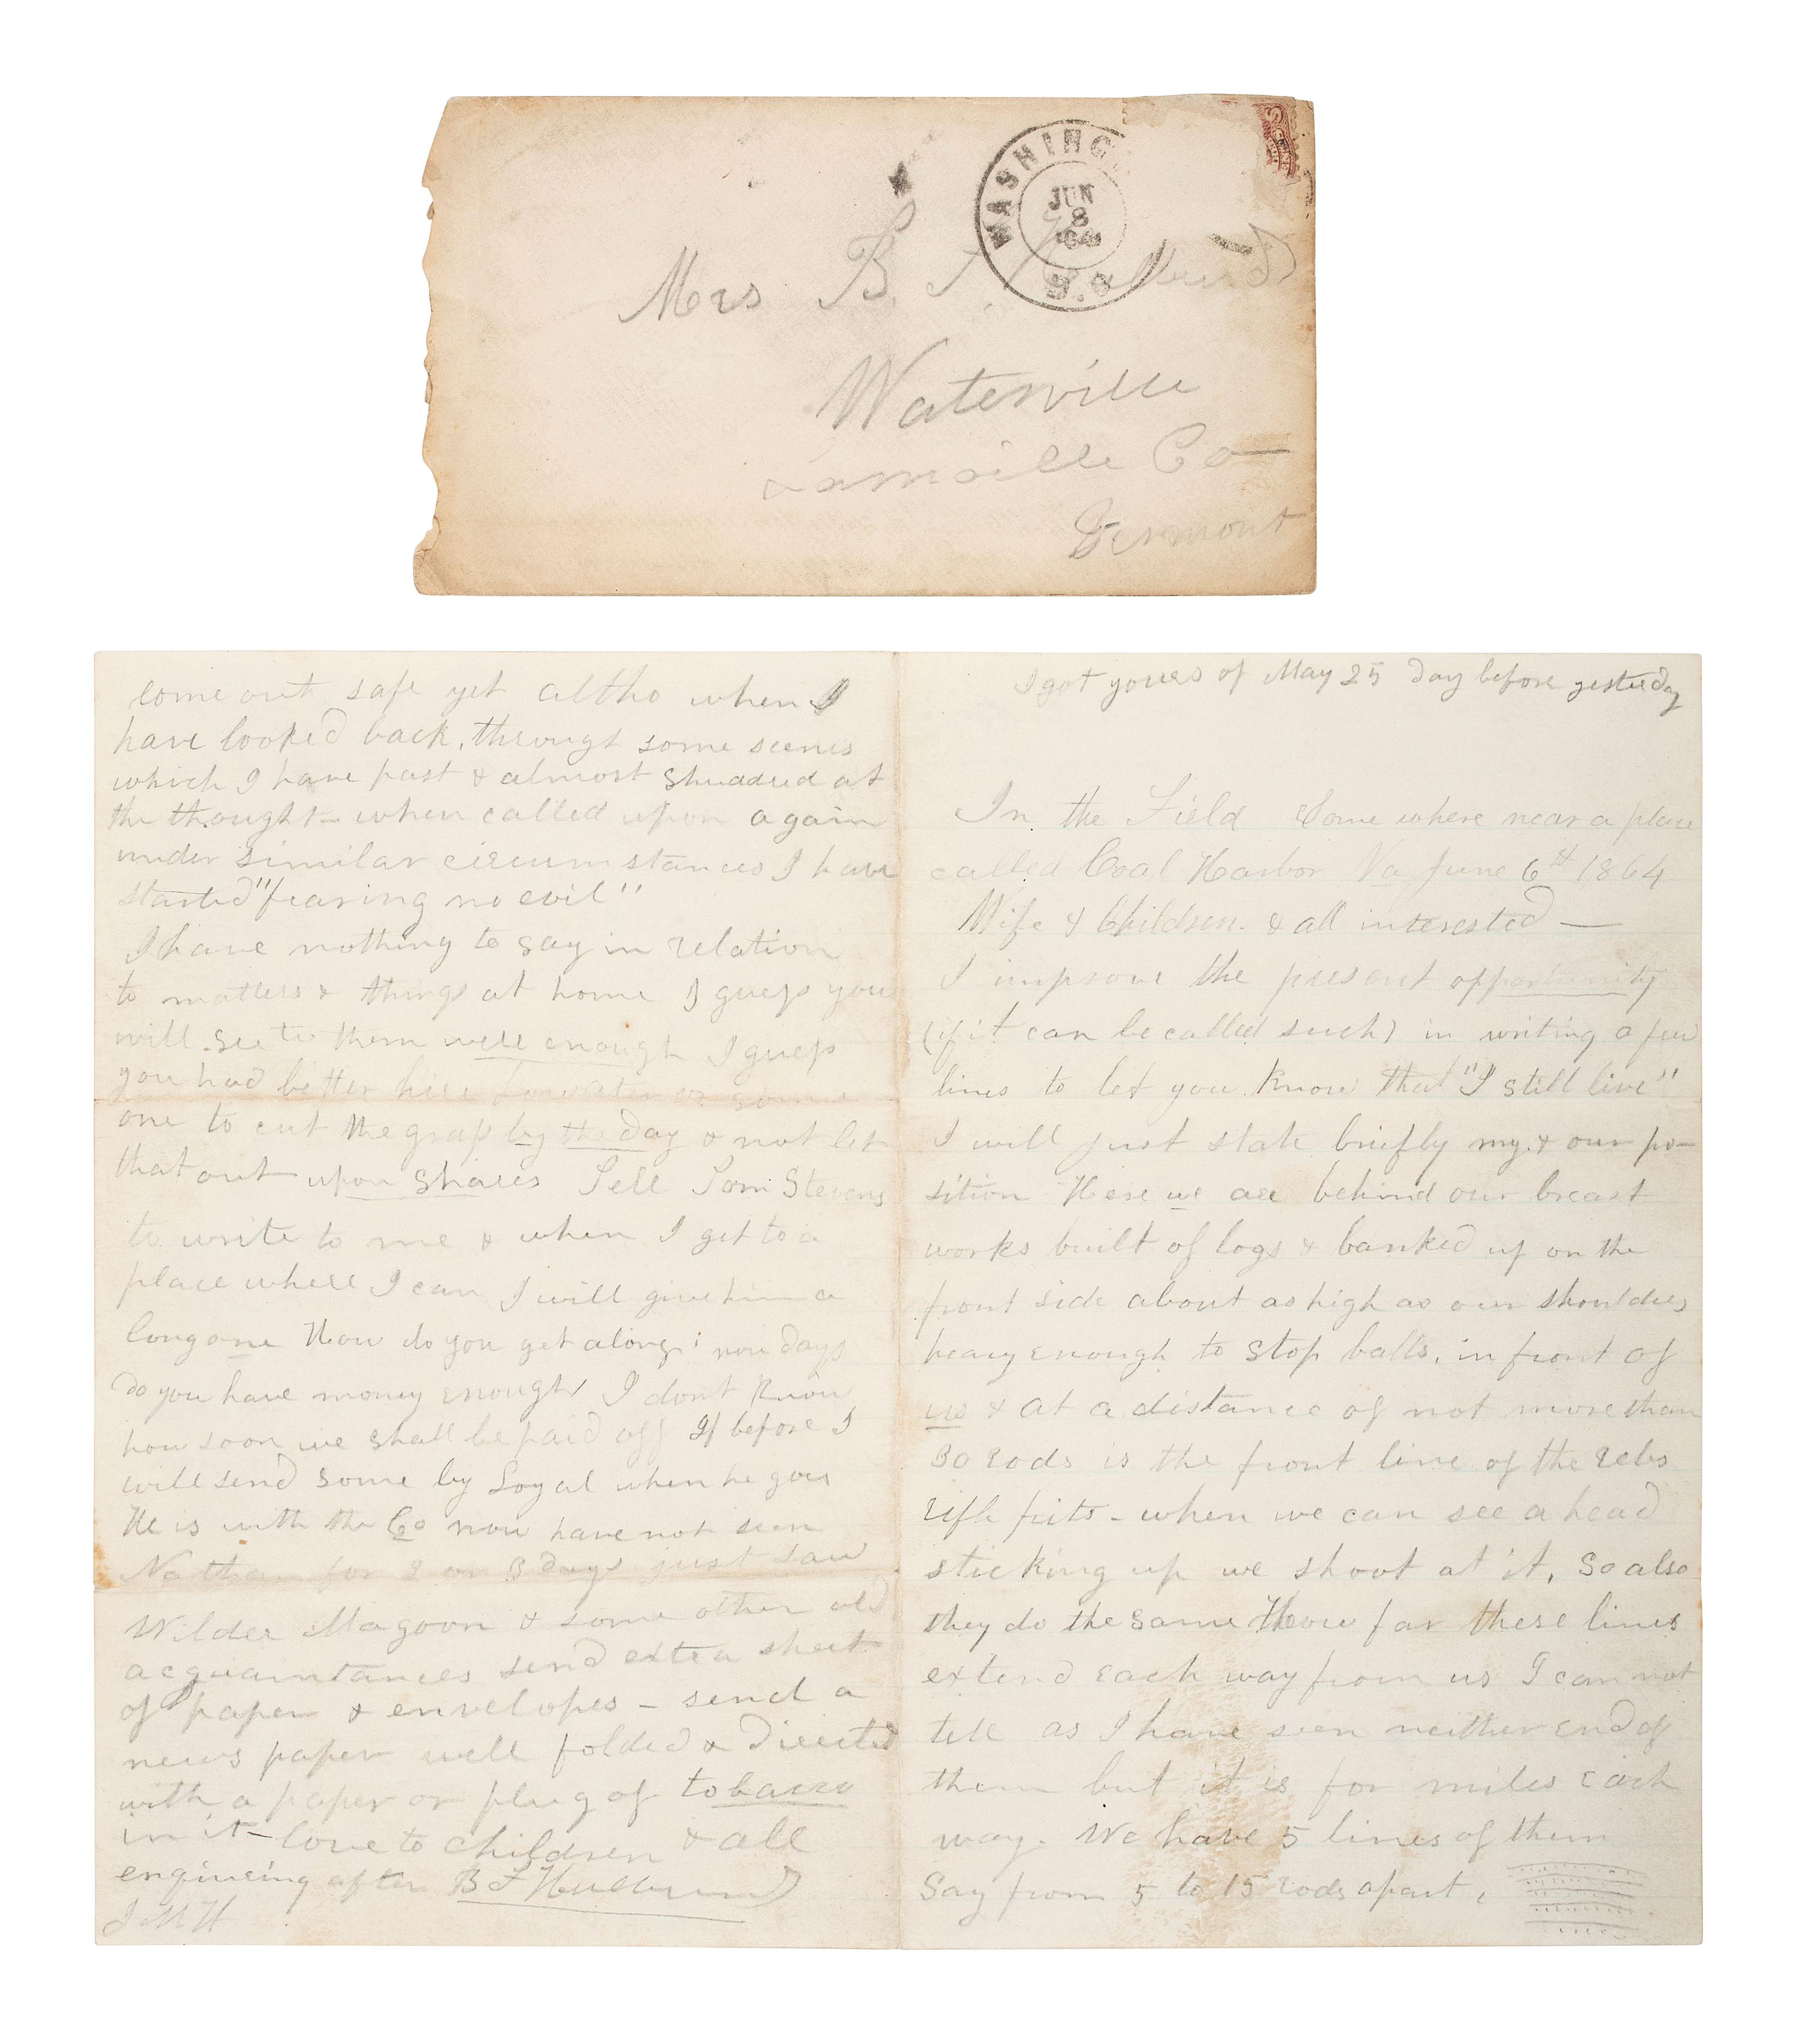 WASHING
JUN
8
'64
D.C
Mrs B. F.
Waterville
Lamoille Co
Vermont
I got yours of May 25 day before yesterday
In the Field Some where near a place
called Coal Harbor Va June 6th 1864
Wife & Children. & all interested —
I improve the present opportunity
(if it can be called such) in writing a few
lines to let you know that "I still live"
I will just state briefly my & our po-
sition Here we are behind our breast
works built of logs & banked up on the
front side about as high as our shoulders
heavy enough to stop balls. in front of
us & at a distance of not more than
30 rods is the front line of the rebs
rifle pits - when we can see a head
sticking up we shoot at it, so also
they do the same How far these lines
extend each way from us I can not
tell as I have seen neither end of
them but it is for miles each
way. We have 5 lines of them
Say from 5 to 15 rods apart,
come out safe yet altho when I
have looked back, through some scenes
which I have past & almost shuddred at
the thought - when called upon again
under similar circumstances I have
started "fearing no evil"
I have nothing to say in relation
to matters & things at home I guess you
will see to them well enough I guess
you had better hire or some
one to cut the grass by the day & not let
that out upon shares Tell Tom Stevens
to write to me & when I get to a
place where I can I will give him a
long one How do you get along now days
do you have money enough I dont know
how soon we shall be paid off If before I
will send some by Loyal when he goes
He is with the Co now have not seen
Nathan for 2 or 3 days just saw
Wilder Magoon & some other old
acquaintances send extra sheet
of paper & envelopes - send a
news paper well folded & directed
with a paper or plug of tobacco
in it - love to children & all
enquiring after B F
J M H